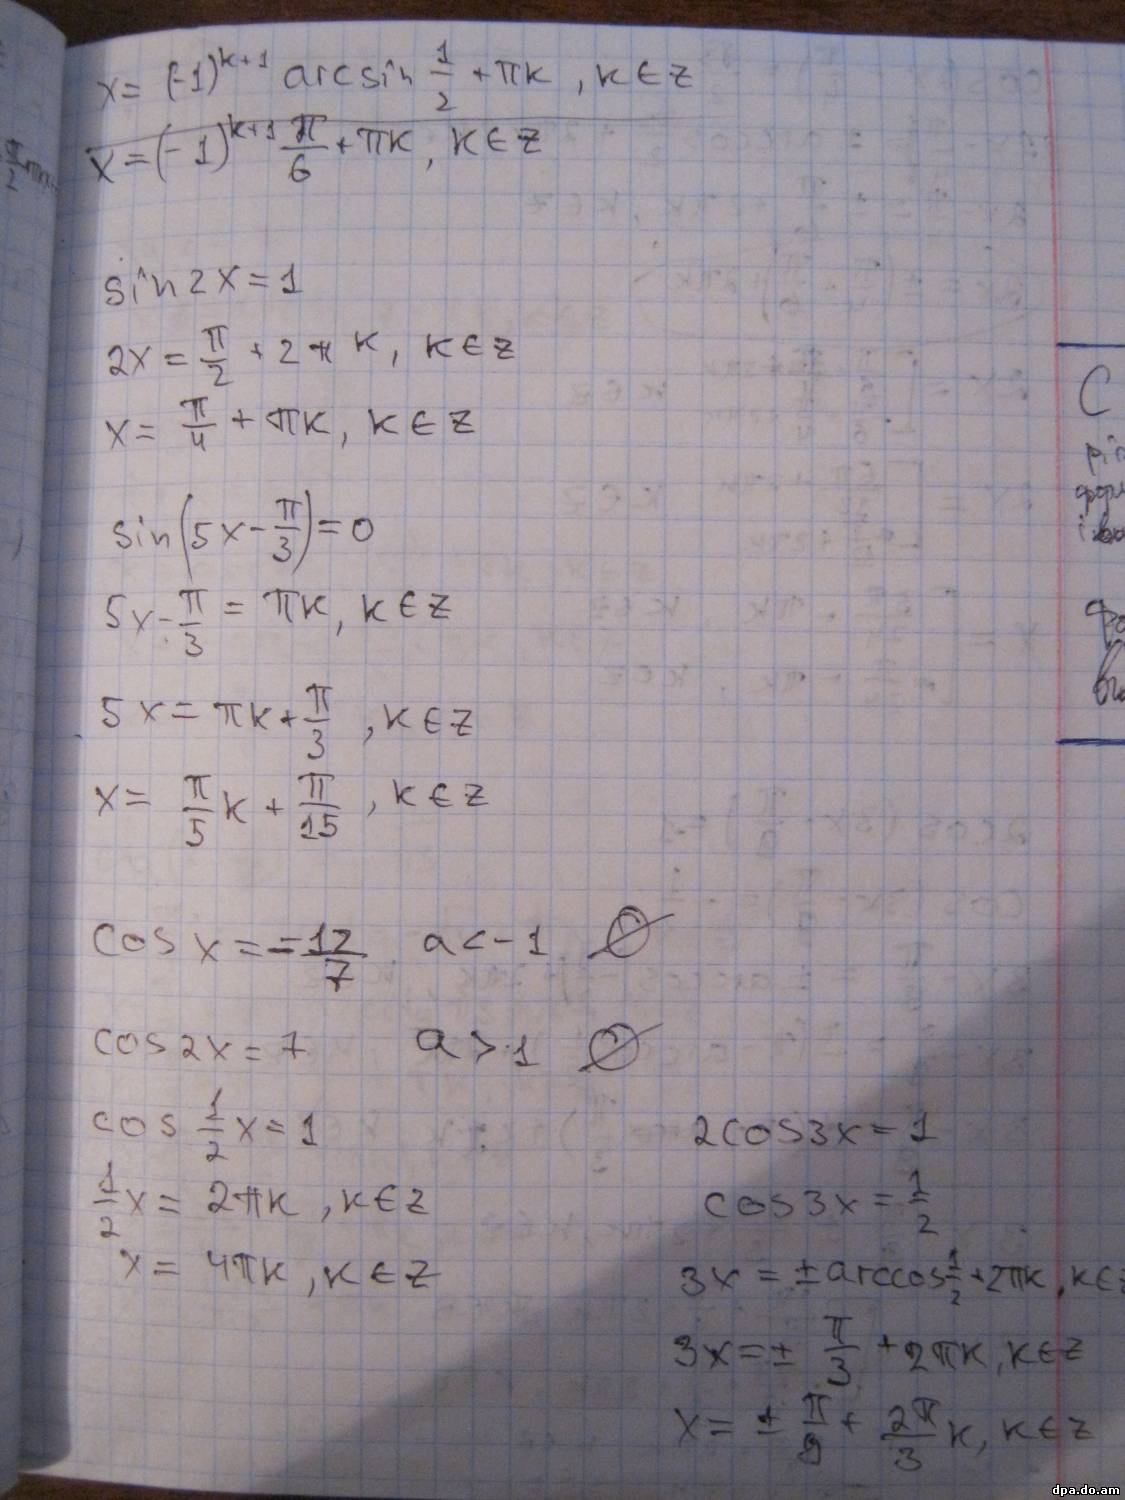 x = (-1)^{k+1} arcsin 1/2 + πk, k ∈ z
x = (-1)^{k+1} π/6 + πk, k ∈ z
sin 2x = 1
2x = π/2 + 2πk, k ∈ z
x = π/4 + πk, k ∈ z
sin(5x - π/3) = 0
5x - π/3 = πk, k ∈ z
5x = πk + π/3, k ∈ z
x = π/5 k + π/15, k ∈ z
cos x = -12/7 a < -1 ∅
cos 2x = 7 a > 1 ∅
cos 1/2 x = 1
1/2 x = 2πk, k ∈ z
x = 4πk, k ∈ z
2cos3x = 1
cos3x = 1/2
3x = ± arccos 1/2 + 2πk, k ∈ z
3x = ± π/3 + 2πk, k ∈ z
x = ± π/9 + 2π/3 k, k ∈ z
dpa.do.am